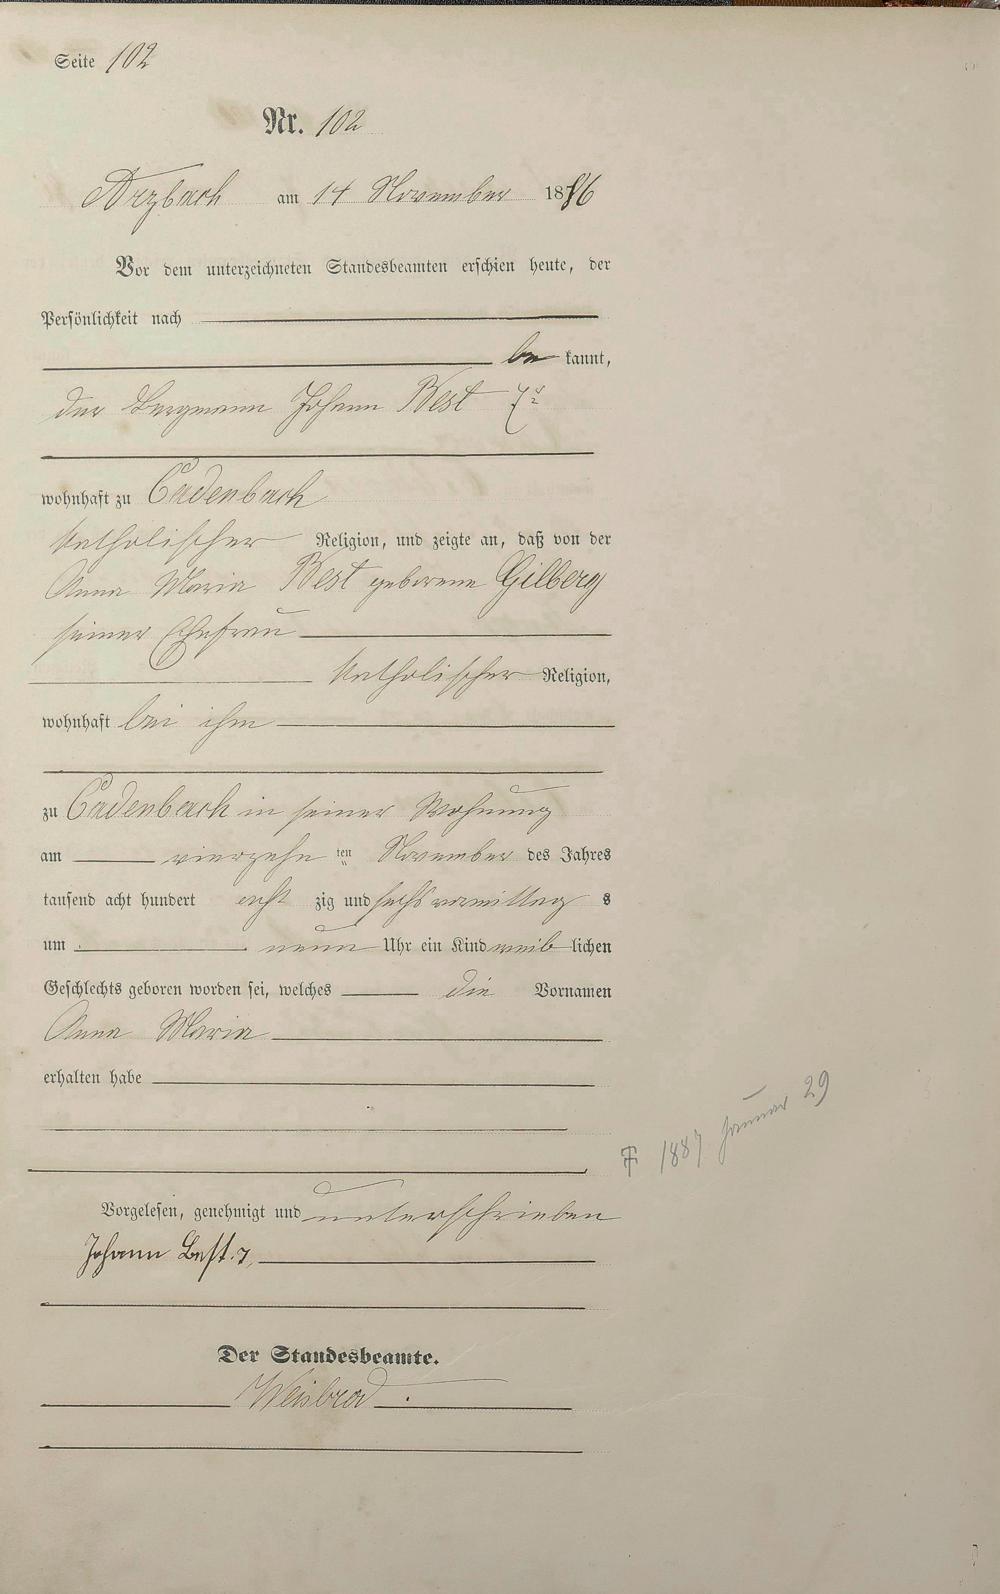 Seite 102
Nr. 102
Arzbach am 14 November 1886
Vor dem unterzeichneten Standesbeamten erschien heute, der
Persönlichkeit nach
be kannt,
der Bergmann Johann Best 7r
wohnhaft zu Cadenbach
katholischer Religion, und zeigte an, daß von der
Anna Maria Best geborene Gilberg
seiner Ehefrau
katholischer Religion,
wohnhaft bei ihm
zu Cadenbach in seiner Wohnung
am vierzehn ten November des Jahres
tausend acht hundert acht zig und sechs vormittag s
um neun Uhr ein Kind weib lichen
Geschlechts geboren worden sei, welches die Vornamen
Anna Maria
erhalten habe
╤ 1887 Januar 29
Vorgelesen, genehmigt und unterschrieben
Johann Best. 7.
Der Standesbeamte.
Weisbrod.